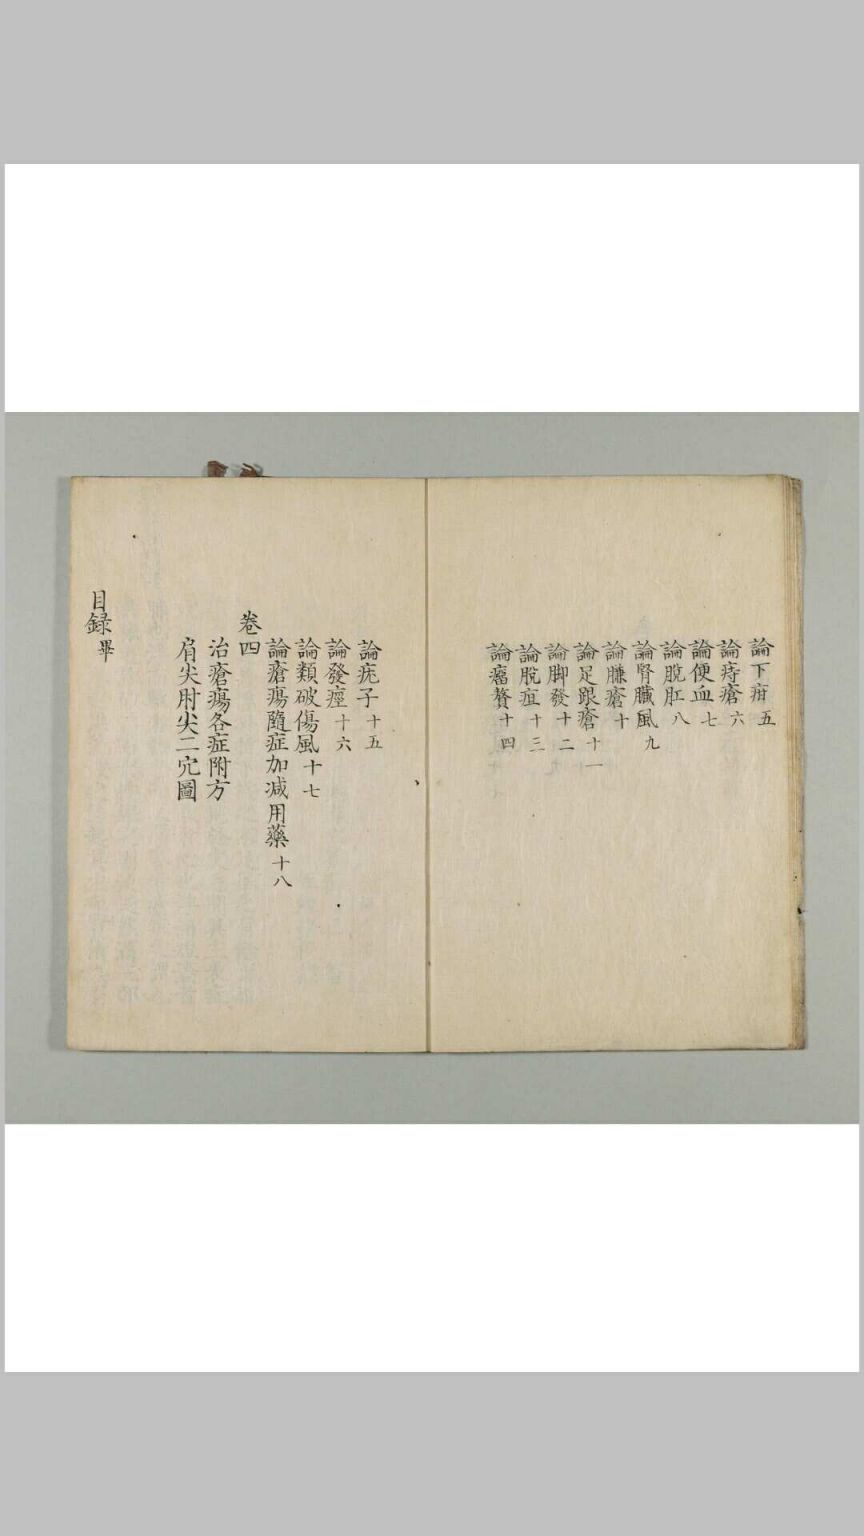 論下疳五
論痔瘡六
論便血七
論脫肛八
論腎臟風九
論臁瘡十
論足跟瘡十一
論脚發十二
論脫疽十三
論瘤贅十四
論疣子十五
論發痙十六
論類破傷風十七
論瘡瘍隨症加减用藥十八
卷四
治瘡瘍各症附方
肩尖肘尖二穴圖
目録畢